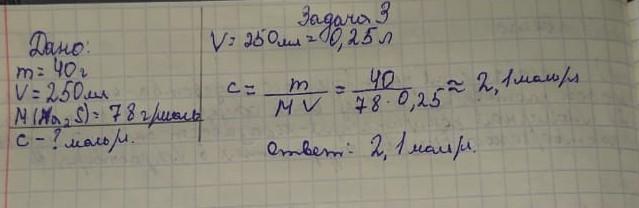 Задача 3
Дано:
m = 40 г
V = 250 мл
M(Na₂S) = 78 г/моль
C - ? моль/л.
V = 250 мл = 0,25 л
c = m / M V = 40 / 78 · 0,25 ≈ 2,1 моль/л
Ответ: 2,1 моль/л.